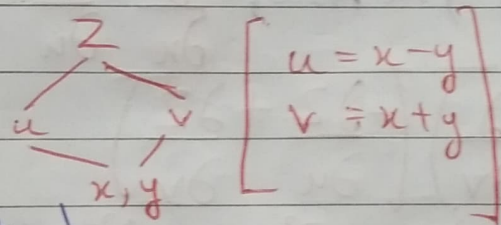 Z
u v
x, y
u = x - y
v = x + y